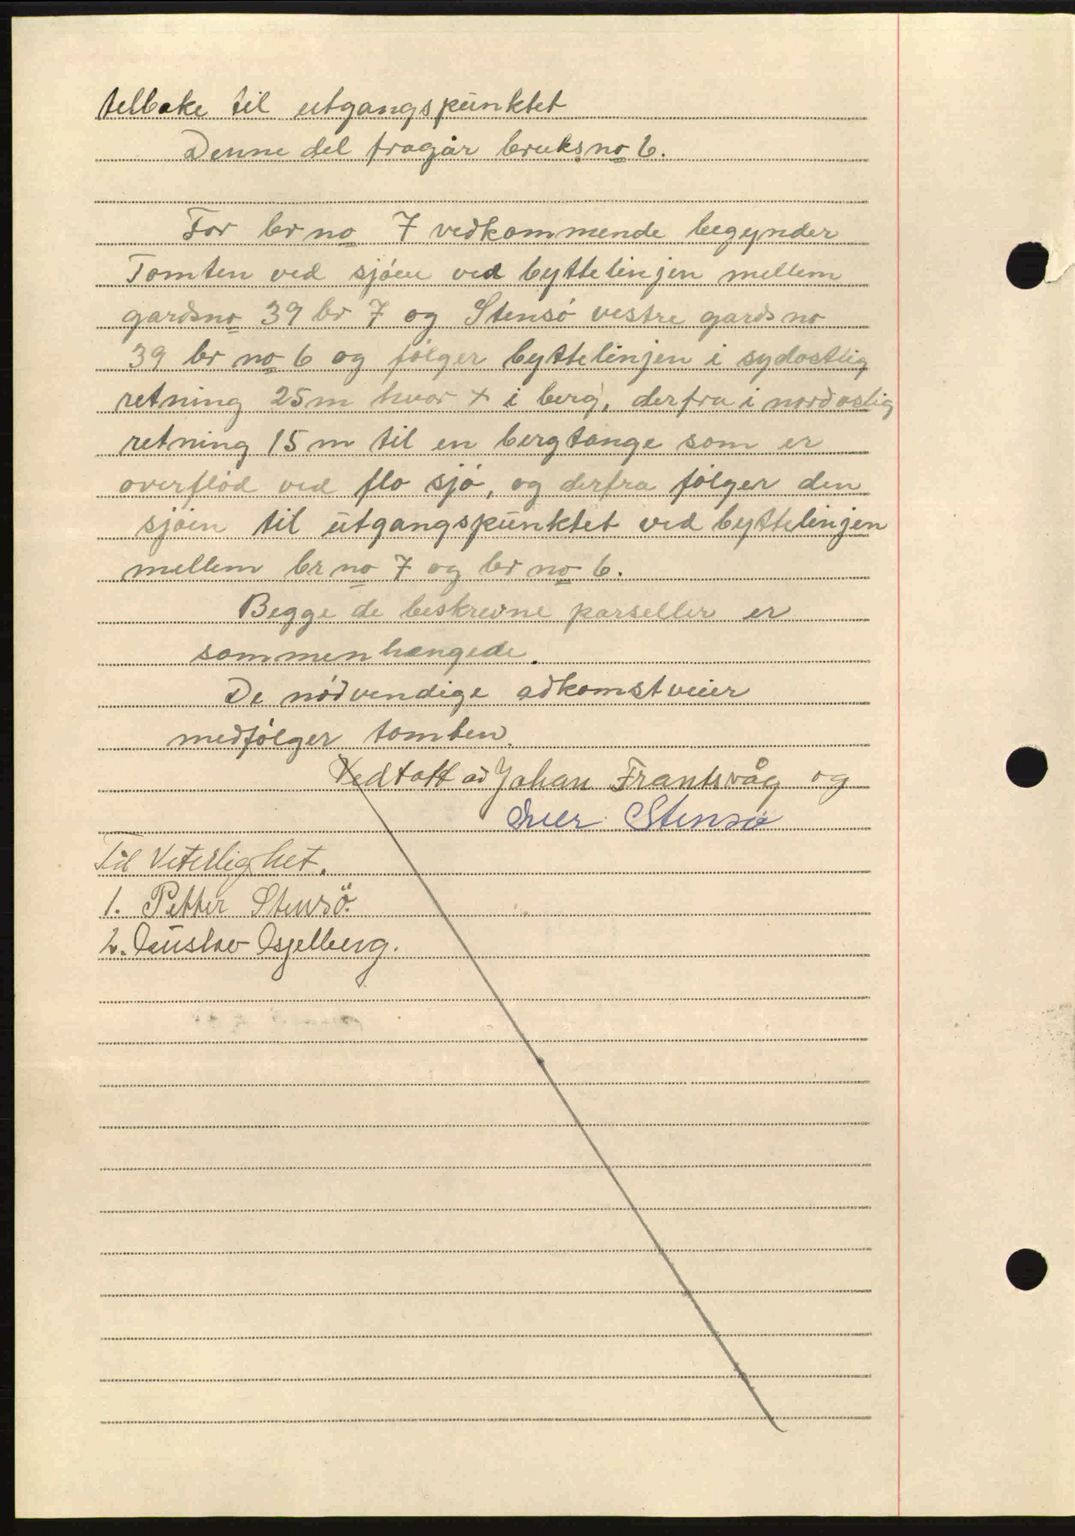 tilbake til utgangspunktet
Denne del fragår bruksno 6.
For br no 7 vedkommende begynder
Tomten ved sjöen ved byttelinjen mellem
gardsno 39 br 7 og Stensö vestre gardsno
39 br no 6 og fölger byttelinjen i sydostlig
retning 25 m hvor + i berg, derfra i nordostlig
retning 15 m til en bergtange som er
overflöd ved flo sjö, og derfra fölger den
sjöen til utgangspunktet ved byttelinjen
mellem br no 7 og br no 6.
Begge de beskrevne parseller er
sammenhængede.
De nödvendige adkomstveier
medfölger tomten.
Vedtatt av Johan Frantsvåg og
Iver Stensö
Til Viterlighet.
1. Petter Stensö.
2. Gustav Gjelberg.